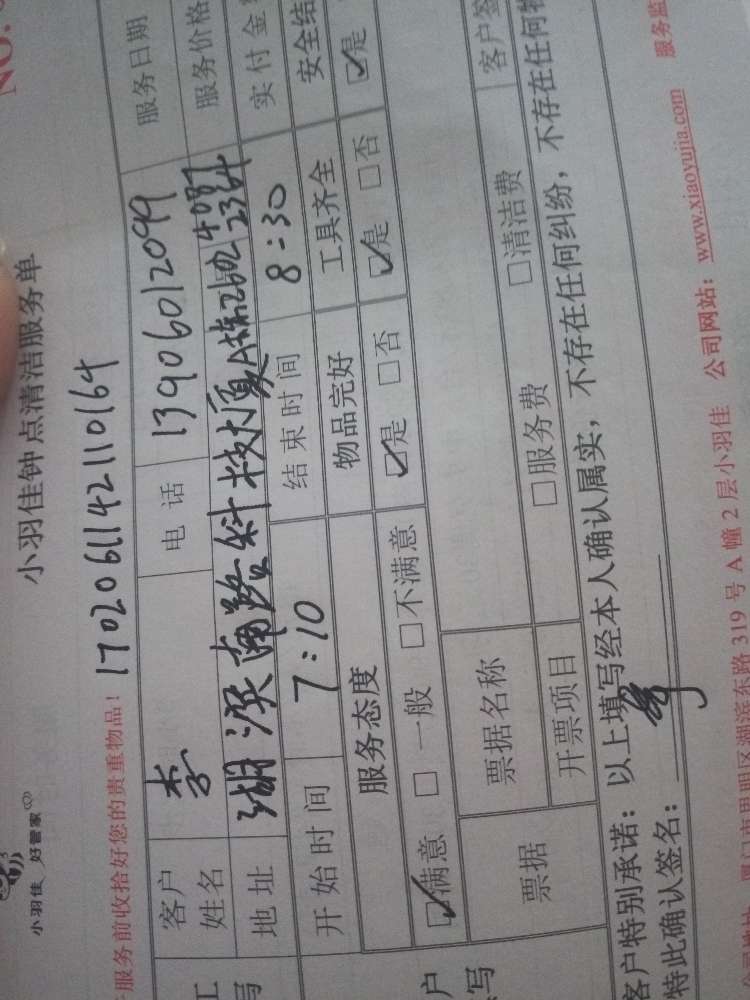 NO.
小羽佳 好管家
小羽佳钟点清洁服务单
服务前收拾好您的贵重物品！ 1702061142110164
客户姓名 李 电话 13906012099 服务日期
地址 湖滨南路科技大厦A栋2602 服务价格
开始时间 7:10 结束时间 8:30 实付金
服务态度 物品完好 工具齐全 安全结
☑满意 □一般 □不满意 ☑是 □否 ☑是 □否 ☑是
票据 票据名称
开票项目 □服务费 □清洁费 客户签
客户特别承诺：以上填写经本人确认属实，不存在任何纠纷，不存在任何物
特此确认签名：
湖滨东路 319 号 A 幢 2 层小羽佳 公司网站：www.xiaoyujia.com 服务监